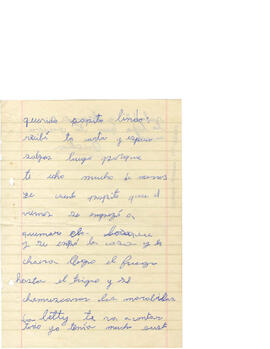 querido papito lindo:
recibí tu carta y espero
salgas luego porque
te echo mucho de menos
te cuento papito que el
se empezó a
quemar
y se la casa y la
chacra llego el fuego
hasta el trigo y se
chamuscaron las
la betty te va a contar
todo yo tenia mucho sust